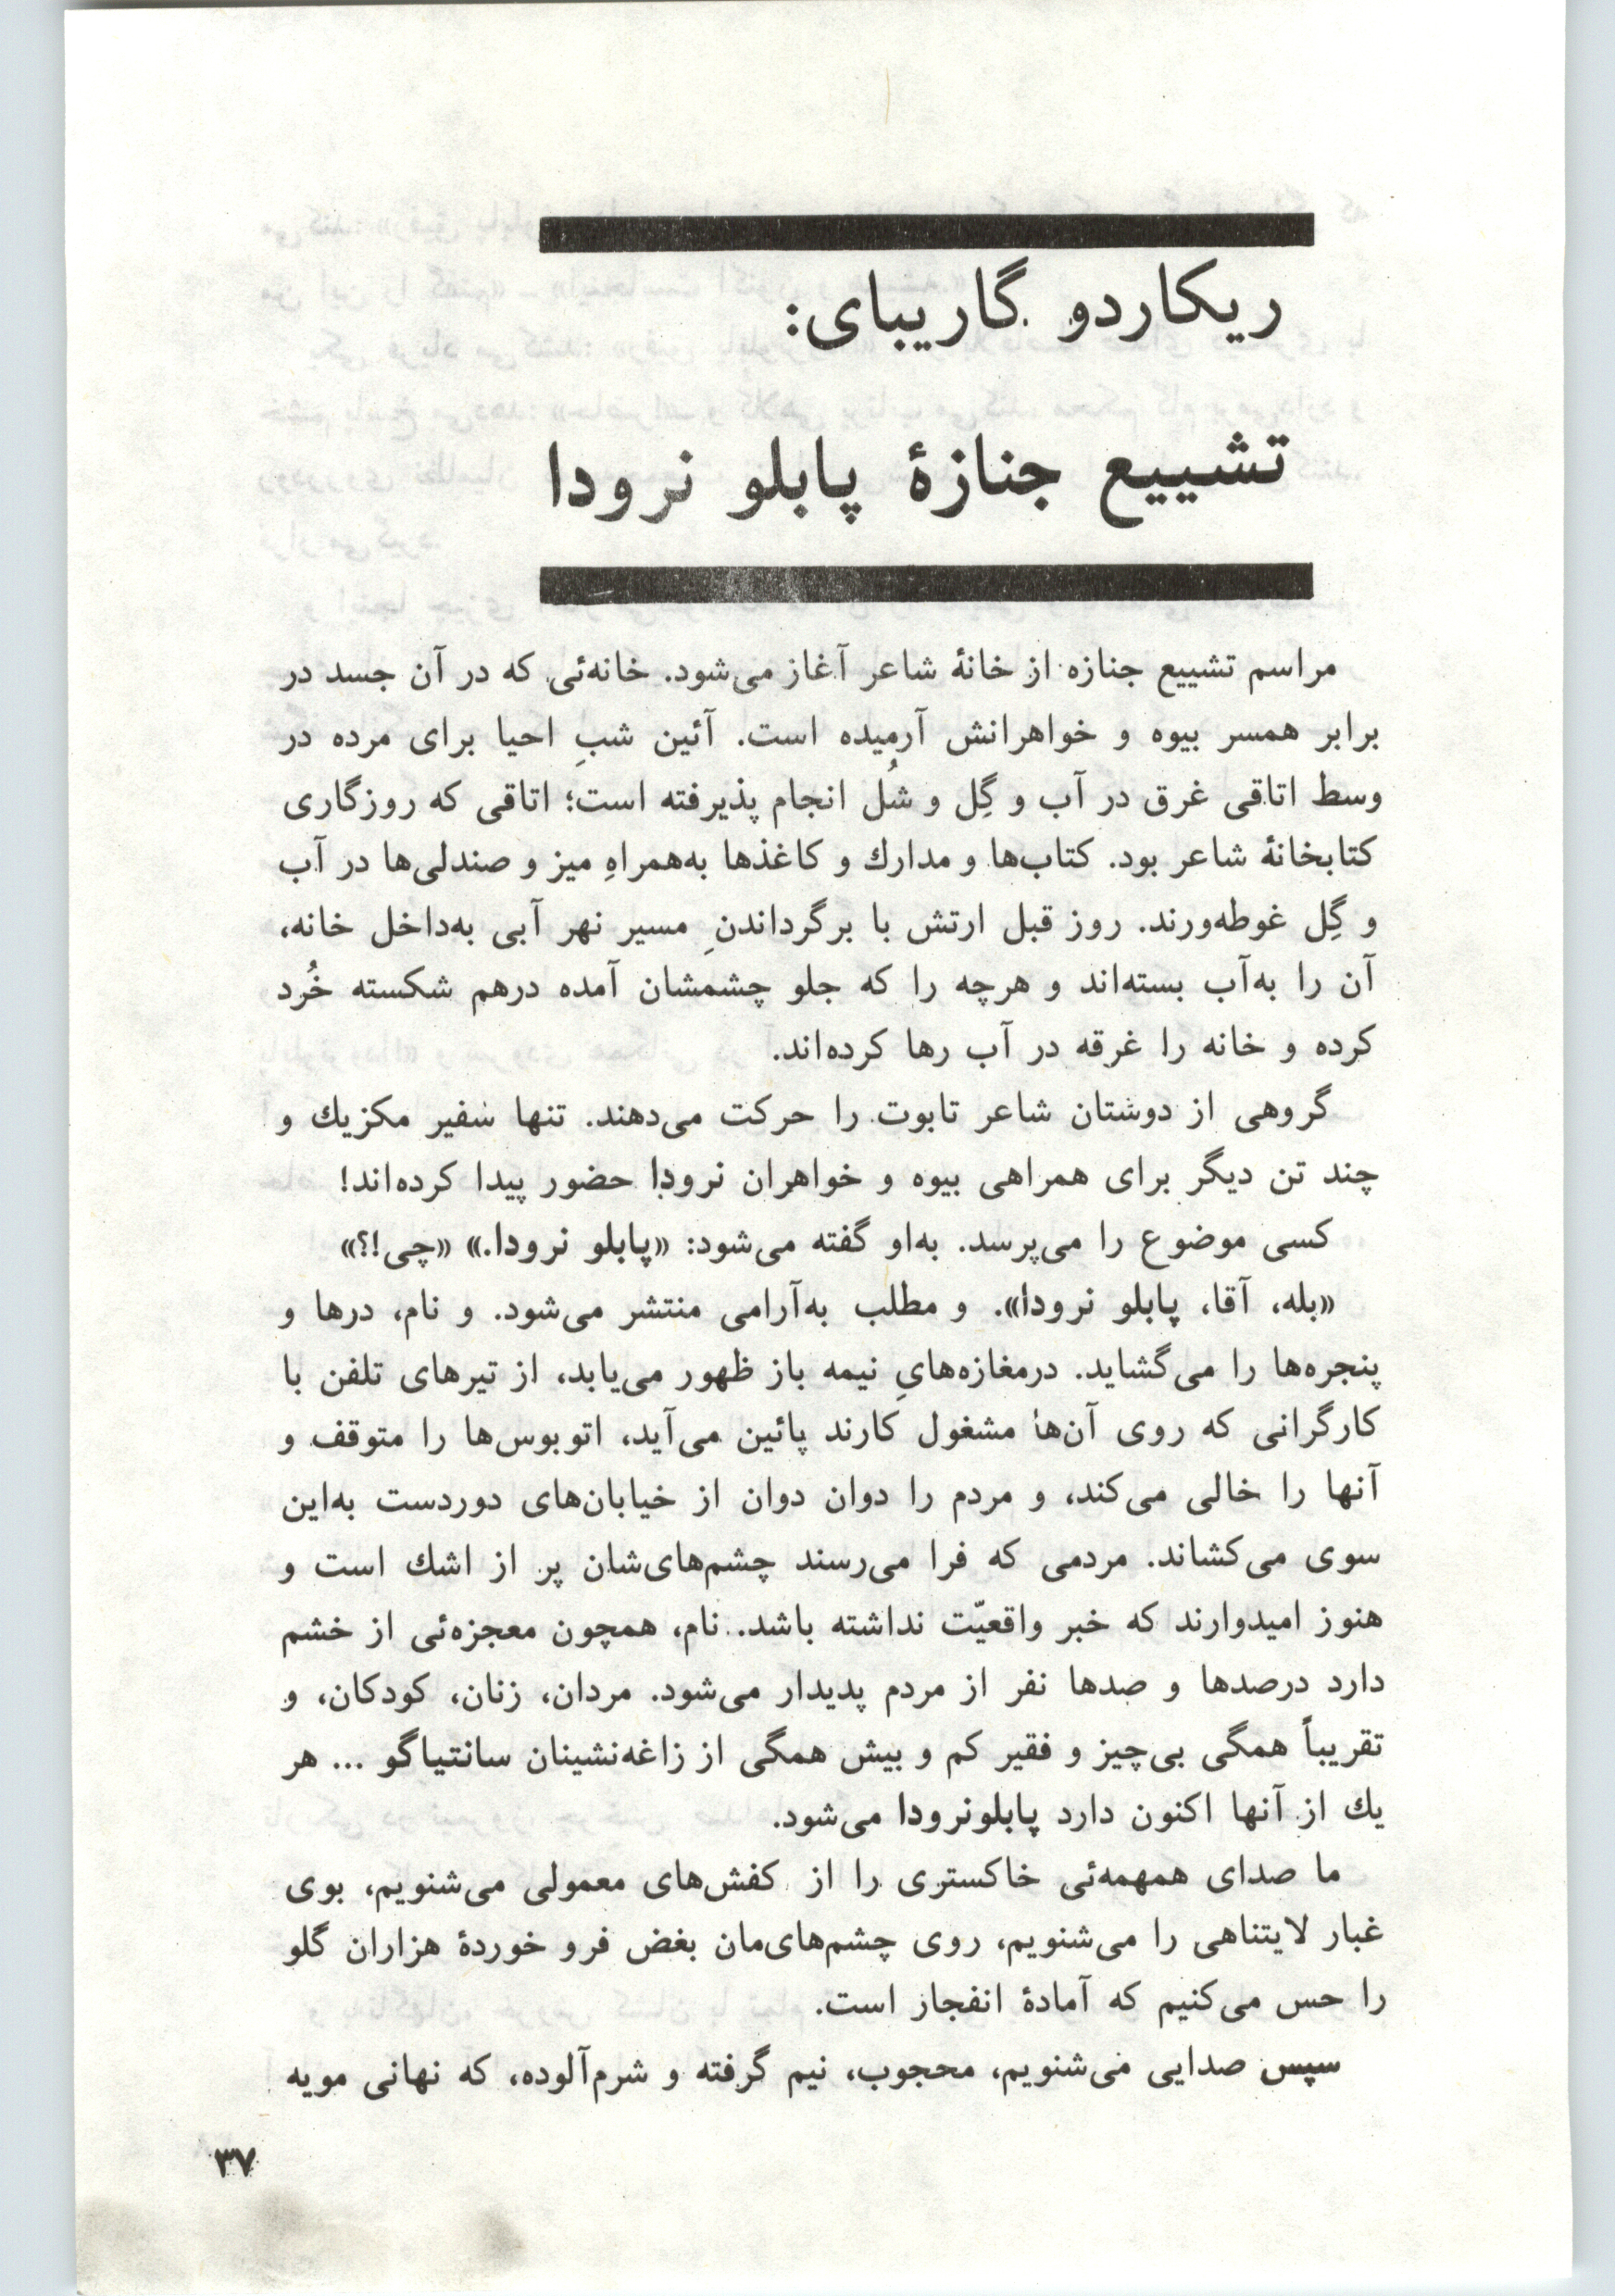 ریکاردو گاریبای:
تشییع جنازهٔ پابلو نرودا
مراسم تشییع جنازه از خانهٔ شاعر آغاز می‌شود. خانه‌ئی که در آن جسد در
برابر همسر بیوه و خواهرانش آرمیده است. آئین شبِ احیا برای مرده در
وسط اتاقی غرق در آب و گِل و شُل انجام پذیرفته است؛ اتاقی که روزگاری
کتابخانهٔ شاعر بود. کتاب‌ها و مدارك و کاغذها به‌همراهِ میز و صندلی‌ها در آب
و گِل غوطه‌ورند. روز قبل ارتش با برگرداندنِ مسیر نهر آبی به‌داخل خانه،
آن را به‌آب بسته‌اند و هرچه را که جلو چشمشان آمده درهم شکسته خُرد
کرده و خانه را غرقه در آب رها کرده‌اند.
گروهی از دوستان شاعر تابوت را حرکت می‌دهند. تنها سفیر مکزیك و
چند تن دیگر برای همراهی بیوه و خواهران نرودا حضور پیدا کرده‌اند!
کسی موضوع را می‌پرسد. به‌او گفته می‌شود: «پابلو نرودا.» «چی!؟»
«بله، آقا، پابلو نرودا». و مطلب به‌آرامی منتشر می‌شود. و نام، درها و
پنجره‌ها را می‌گشاید. درمغازه‌هایِ نیمه باز ظهور می‌یابد، از تیرهای تلفن با
کارگرانی که روی آن‌ها مشغول کارند پائین می‌آید، اتوبوس‌ها را متوقف و
آنها را خالی می‌کند، و مردم را دوان دوان از خیابان‌های دوردست به‌این
سوی می‌کشاند. مردمی که فرا می‌رسند چشم‌های‌شان پر از اشك است و
هنوز امیدوارند که خبر واقعیّت نداشته باشد. نام، همچون معجزه‌ئی از خشم
دارد درصدها و صدها نفر از مردم پدیدار می‌شود. مردان، زنان، کودکان، و
تقریباً همگی بی‌چیز و فقیر کم و بیش همگی از زاغه‌نشینان سانتیاگو ... هر
یك از آنها اکنون دارد پابلونرودا می‌شود.
ما صدای همهمه‌ئی خاکستری را از کفش‌های معمولی می‌شنویم، بوی
غبار لایتناهی را می‌شنویم، روی چشم‌های‌مان بغض فرو خوردهٔ هزاران گلو
را حس می‌کنیم که آمادهٔ انفجار است.
سپس صدایی می‌شنویم، محجوب، نیم گرفته و شرم‌آلوده، که نهانی مویه
۳۷